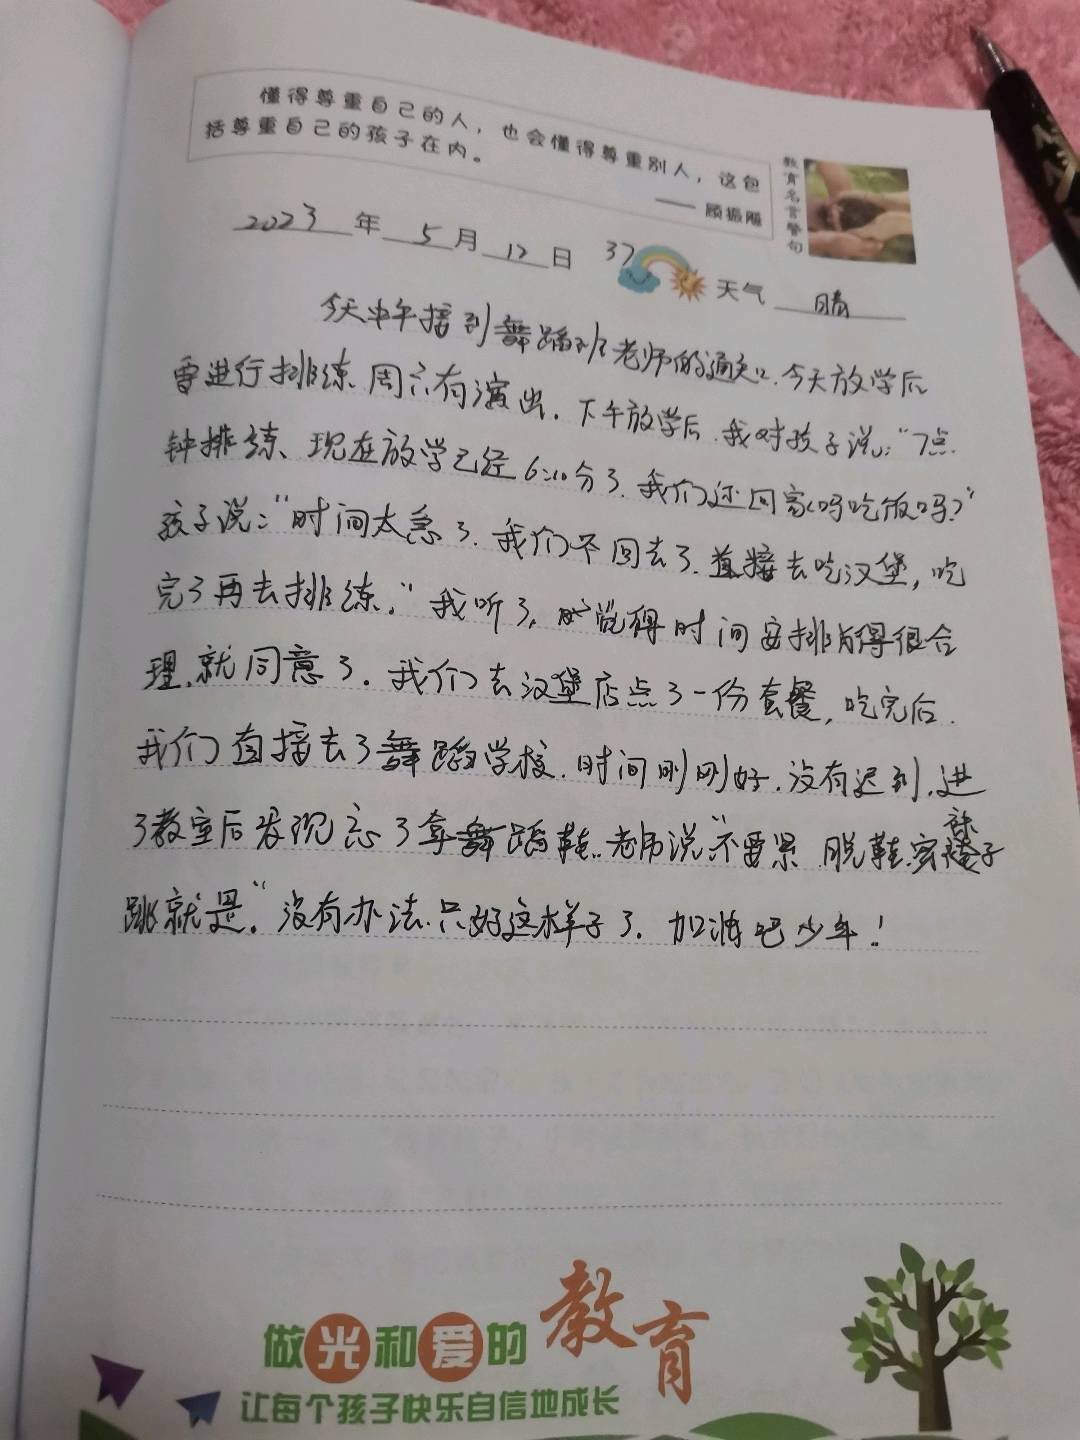 懂得尊重自己的人，也会懂得尊重别人，这包
括尊重自己的孩子在内。
—— 顾振飚
教育名言警句
2023年5月12日 37 天气 晴
今天中午接到舞蹈班老师的通知.今天放学后
需进行排练.周六有演出.下午放学后.我对孩子说:"7点
钟排练、现在放学已经6:10分了.我们还回家吗吃饭吗?"
孩子说:"时间太急了.我们不回去了.直接去吃汉堡,吃
完了再去排练."我听了,觉得时间安排的得很合
理,就同意了.我们去汉堡店点了一份套餐,吃完后.
我们直接去了舞蹈学校.时间刚刚好.没有迟到.进
了教室后发现忘了拿舞蹈鞋.老师说"不要紧 脱鞋.穿袜子
跳就是."没有办法.只好这样子了.加油吧少年!
做光和爱的教育
让每个孩子快乐自信地成长